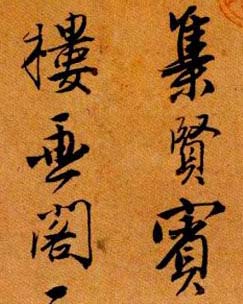 集賢賓
樓閣